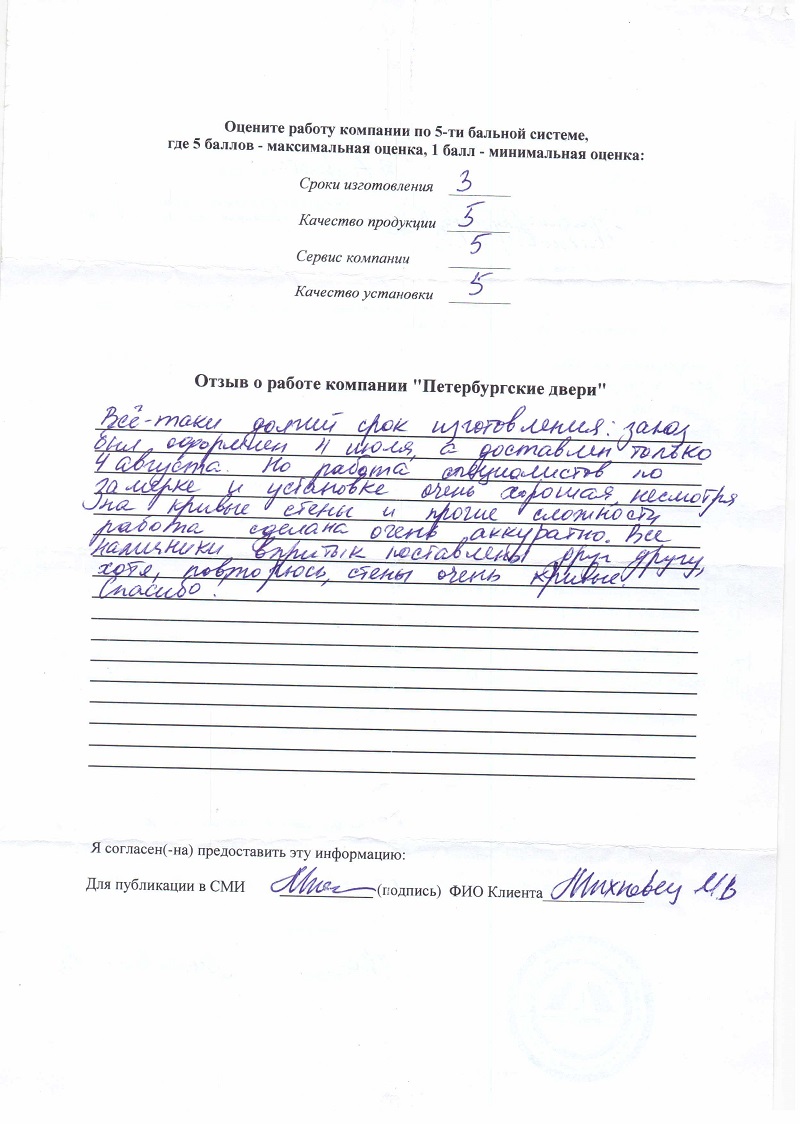 Оцените работу компании по 5-ти бальной системе,
где 5 баллов - максимальная оценка, 1 балл - минимальная оценка:
Сроки изготовления 3
Качество продукции 5
Сервис компании 5
Качество установки 5
Отзыв о работе компании "Петербургские двери"
Всё-таки долгий срок изготовления: заказ
был оформлен 4 июля, а доставлен только
4 августа. Но работа специалистов по
замерке и установке очень хорошая, несмотря
на кривые стены и прочие сложности,
работа сделана очень аккуратно. Все
наличники впритык поставлены друг другу,
хотя, повторюсь, стены очень кривые.
Спасибо.
Я согласен(-на) предоставить эту информацию:
Для публикации в СМИ (подпись) ФИО Клиента Михновец М.В